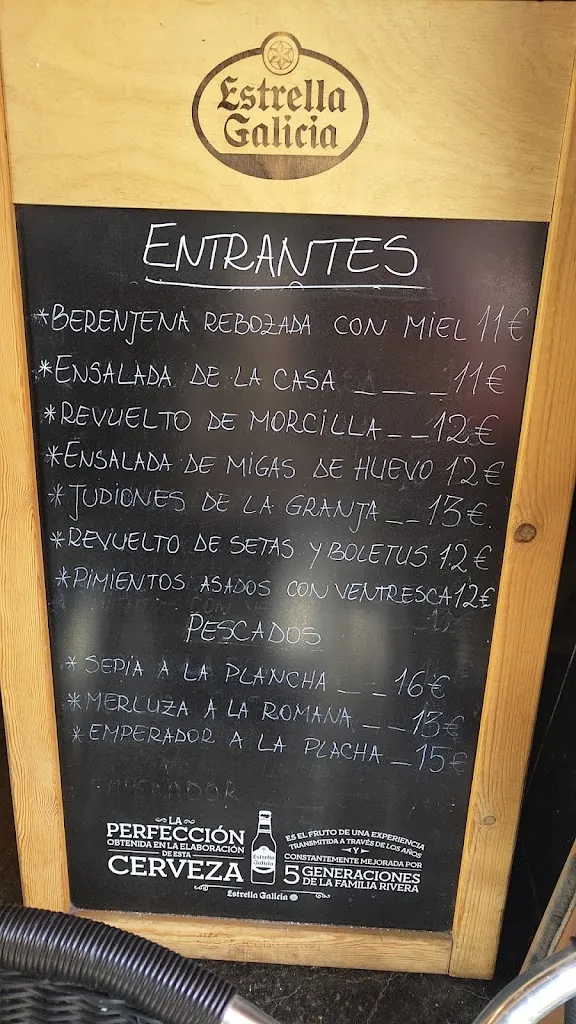 Estrella
Galicia
ENTRANTES
*BERENJENA REBOZADA CON MIEL 11€
*ENSALADA DE LA CASA _ _ _ 11€
*REVUELTO DE MORCILLA _ _ 12€
*ENSALADA DE MIGAS DE HUEVO 12€
*JUDIONES DE LA GRANJA _ _ 13€.
*REVUELTO DE SETAS Y BOLETUS 12€
*PIMIENTOS ASADOS CON VENTRESCA 12€
PESCADOS
*SEPIA A LA PLANCHA _ _ 16€
*MERLUZA A LA ROMANA _ _ 15€
*EMPERADOR A LA PLACHA _ 15€
EMPERADOR
LA
PERFECCIÓN
OBTENIDA EN LA ELABORACIÓN
DE ESTA
CERVEZA
Estrella
Galicia
ES EL FRUTO DE UNA EXPERIENCIA
TRANSMITIDA A TRAVÉS DE LOS AÑOS
Y
CONSTANTEMENTE MEJORADA POR
5 GENERACIONES
DE LA FAMILIA RIVERA
Estrella Galicia